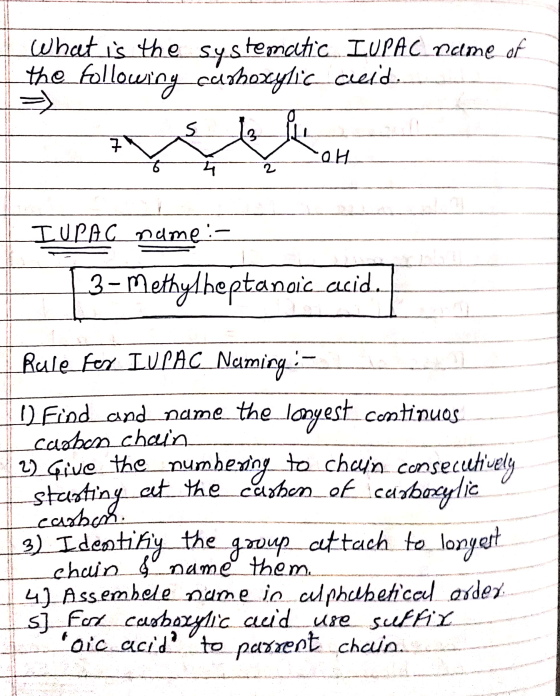 What is the systematic IUPAC name of
the following carboxylic acid.
⇒
O
7 5 3 1
6 4 2 OH
IUPAC name:-
3-Methylheptanoic acid.
Rule for IUPAC Naming:-
1) Find and name the longest continuos
carbon chain
2) Give the numbering to chain consecutively
starting at the carbon of carboxylic
carbon.
3) Identifiy the group attach to longest
chain & name them.
4] Assembele name in alphabetical order.
5] For carboxylic acid use suffix
'oic acid' to parrent chain.